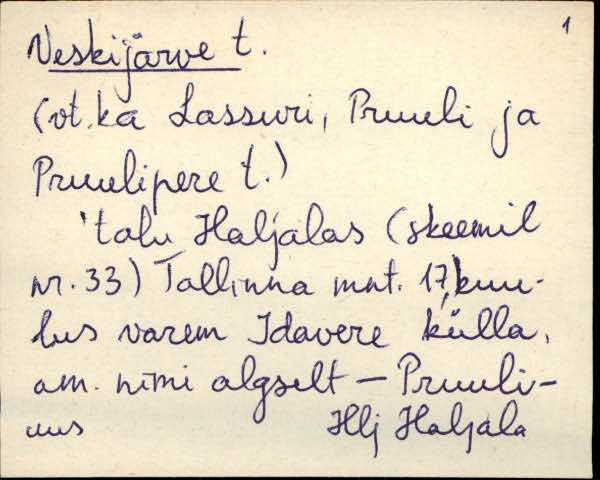 1
Veskijärve t.
(vt. ka Lassuri, Pruuli ja
Pruulipere t.)
talu Haljalas (skeemil
nr. 33) Tallinna mnt. 17, kuu-
lus varem Idavere külla,
am. nimi algselt - Pruuli-
uus Hlj Haljala